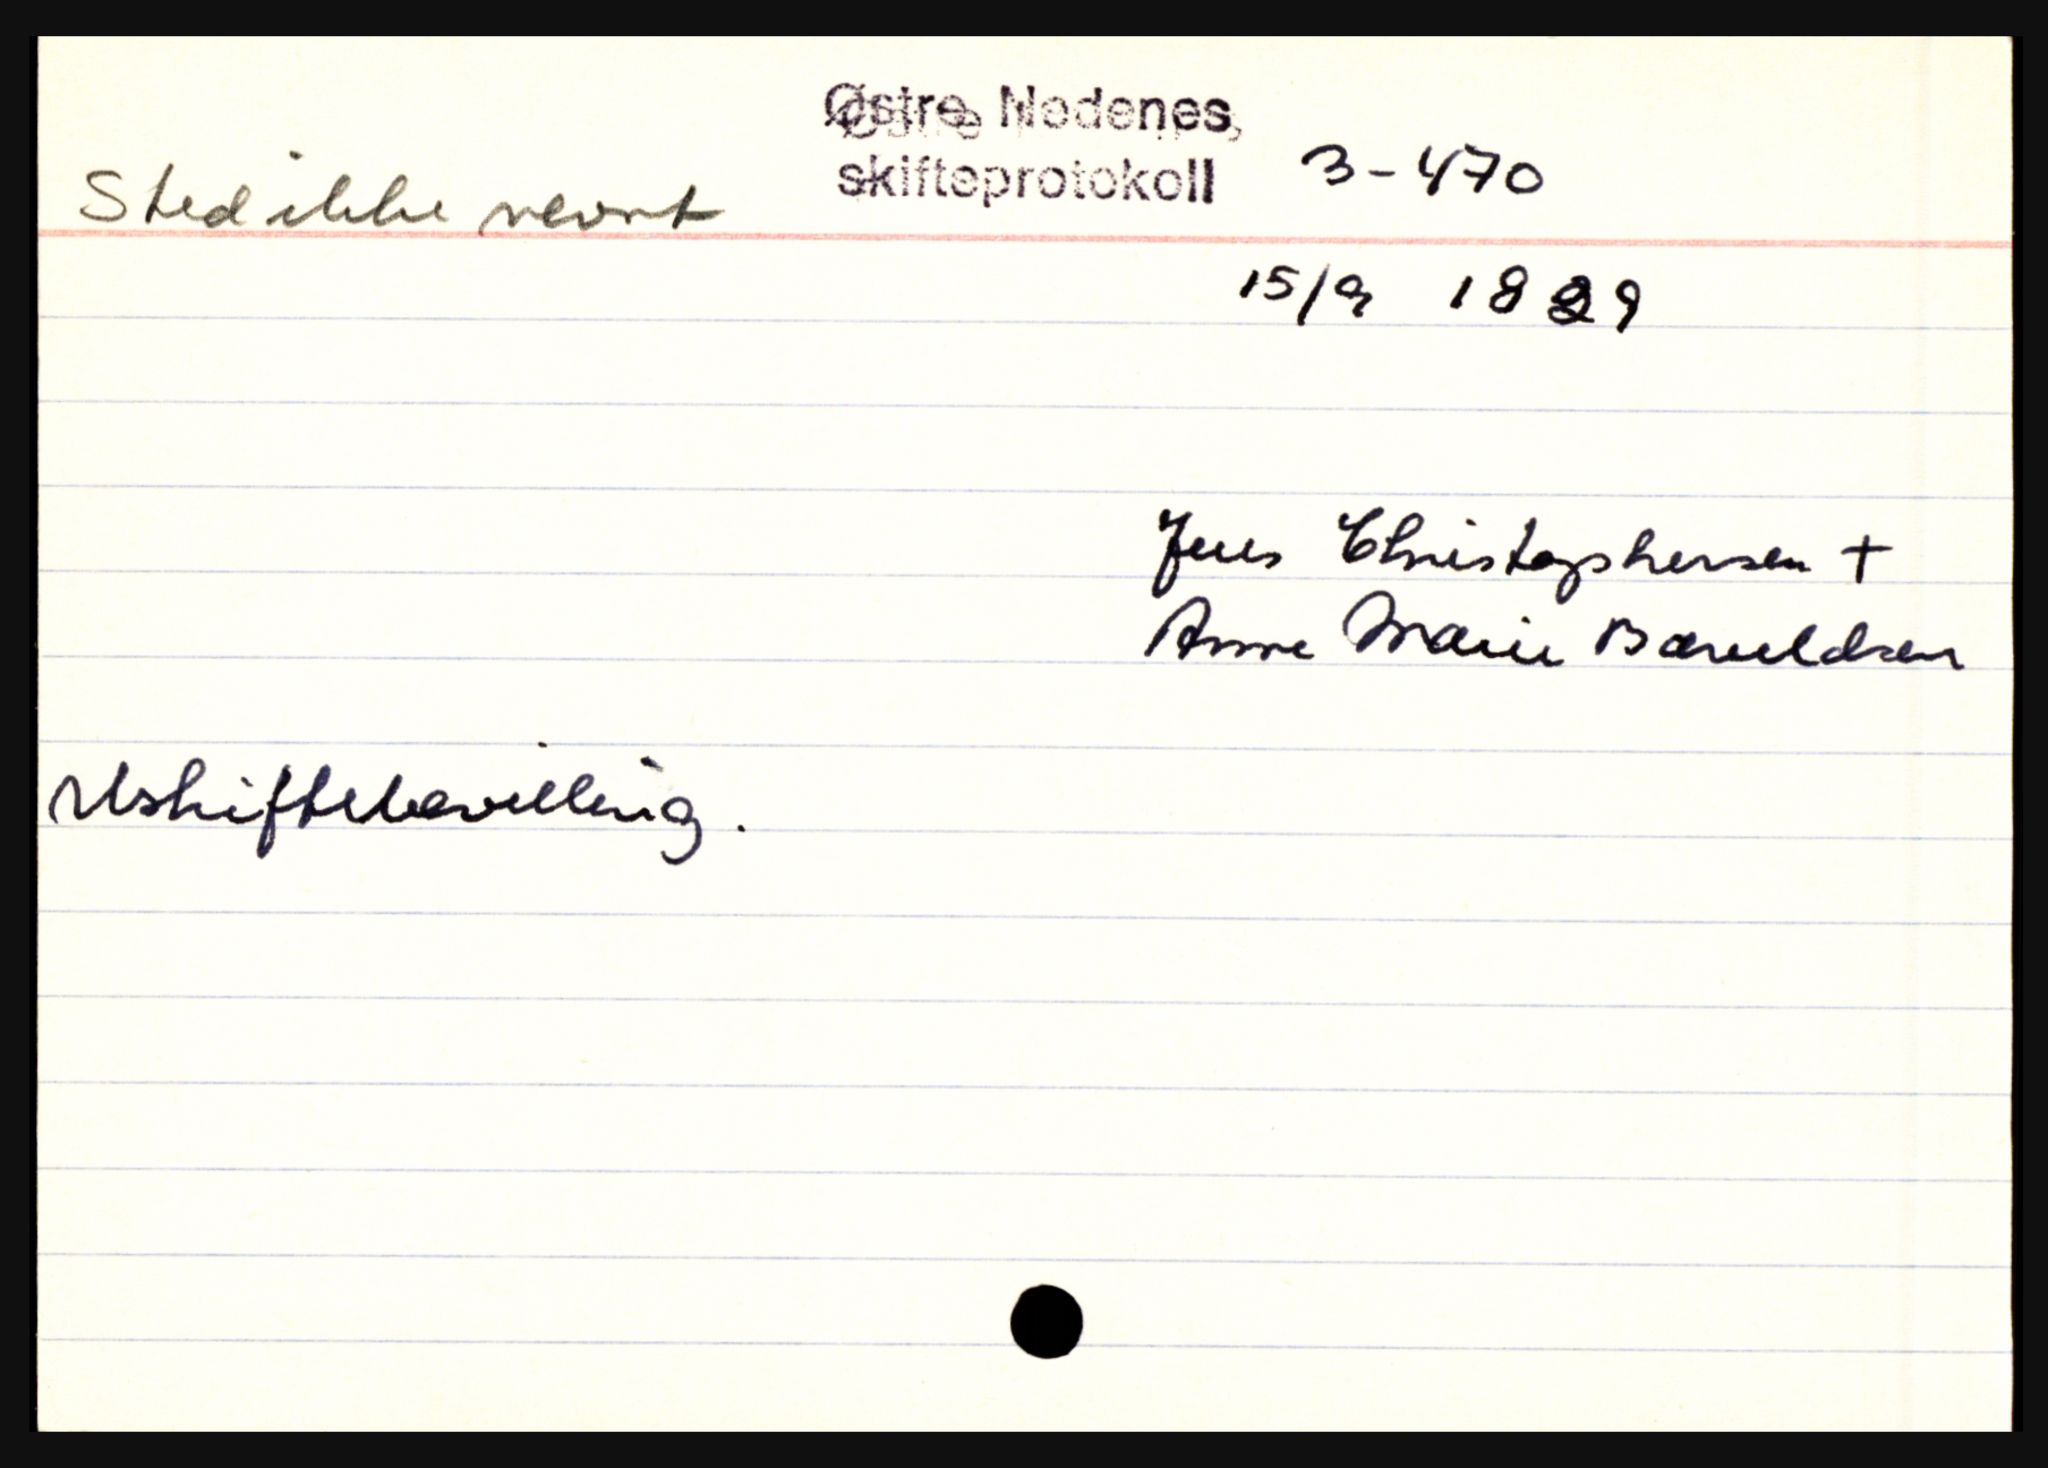 Østre Nedenes,
skifteprotokoll 3-470
Sted ikke nevnt
15/9 1829
Jens Christophersen +
Anne Marie Barueldsen
Uskiftebevilling.